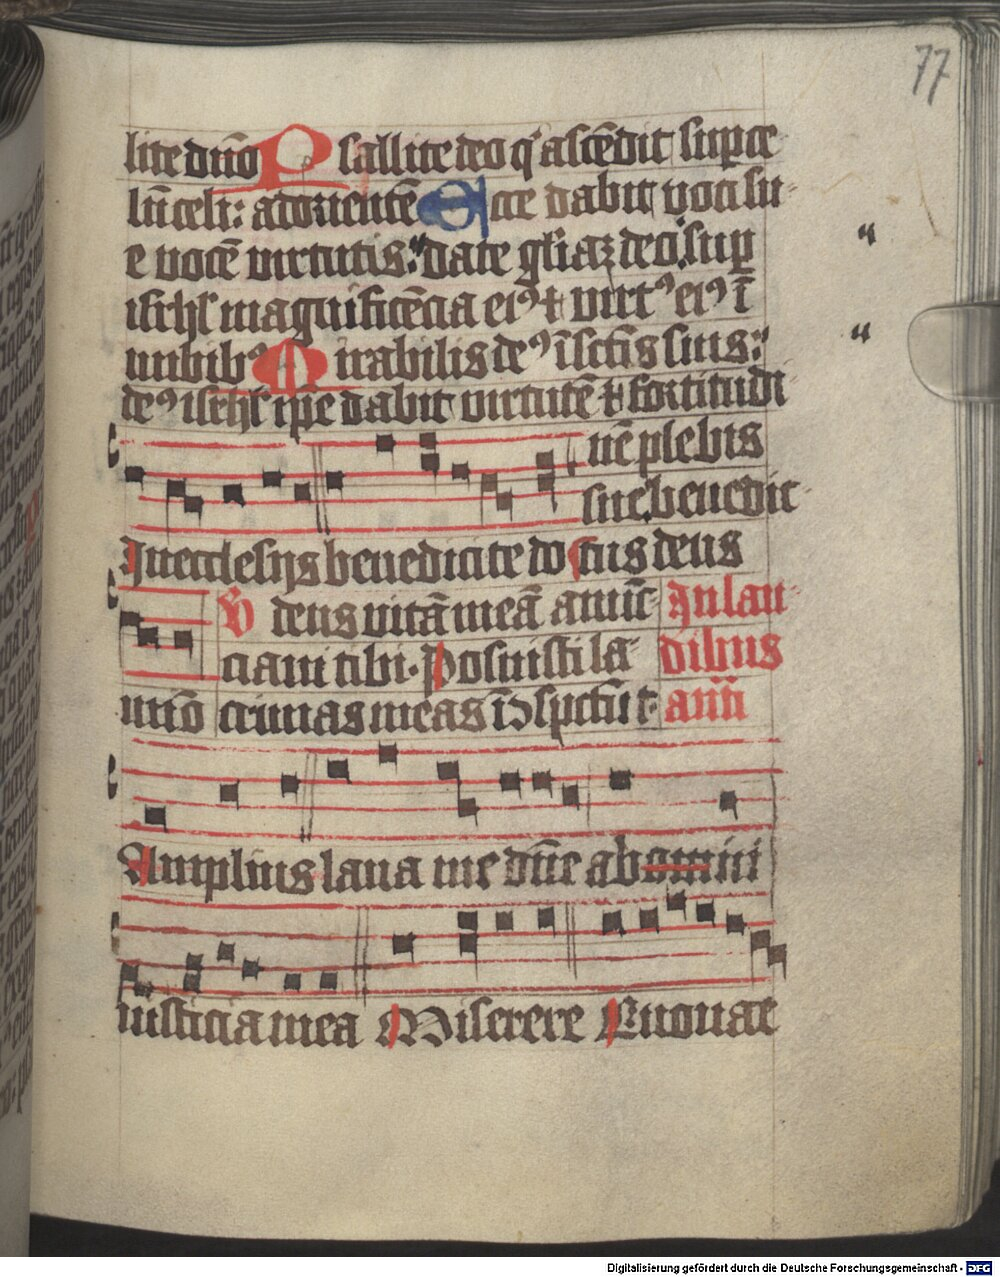 77
lite dn̄o Psallite deo qͥ ascēdit sup ce
lū celi: ad oriente̅ Ecce dabit voci su
e vocē virtutis: date gl̄iaꝫ deo sup
isrhl̄ magnificēcia eiꝰ ⁊ virtꝰ eiꝰ ī
nubibꝰ Mirabilis deꝰ ī sctīs suis:
deꝰ isrhl̄ ip̄e dabit virtutē ⁊ fortitudi
nē plebis
sue benedic
In ecclesijs benedicite do cus deus
V deus vitā meā annūc
In lau
ciaui tibi. Posuisti la
dibus
mīo crimas meas ī ↄspctū t
an̄
Amplius laua me dn̄e ab omni
iusticia mea Miserere Euouae
Digitalisierung gefördert durch die Deutsche Forschungsgemeinschaft - DFG